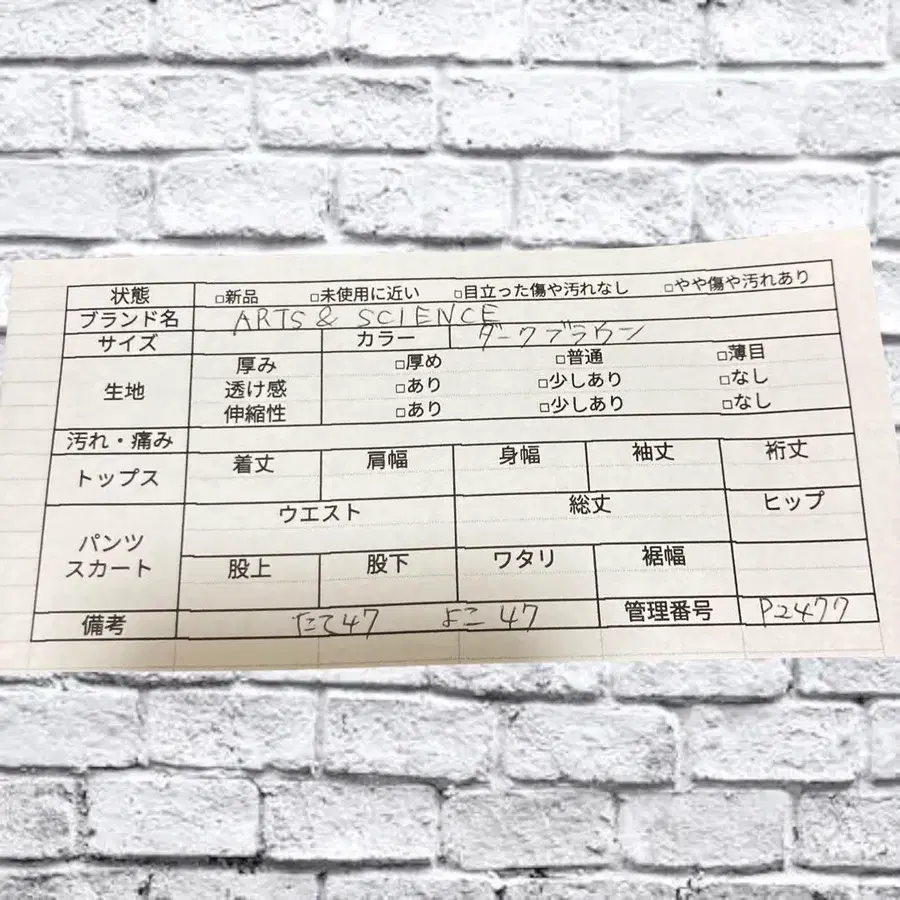 状態 □新品 □未使用に近い □目立った傷や汚れなし □やや傷や汚れあり
ブランド名 ARTS & SCIENCE
サイズ カラー ダークブラウン
生地 厚み □厚め □普通 □薄目
透け感 □あり □少しあり □なし
伸縮性 □あり □少しあり □なし
汚れ・痛み
トップス 着丈 肩幅 身幅 袖丈 裄丈
パンツ スカート ウエスト 総丈 ヒップ
股上 股下 ワタリ 裾幅
備考 たて47 よこ 47 管理番号 P2477